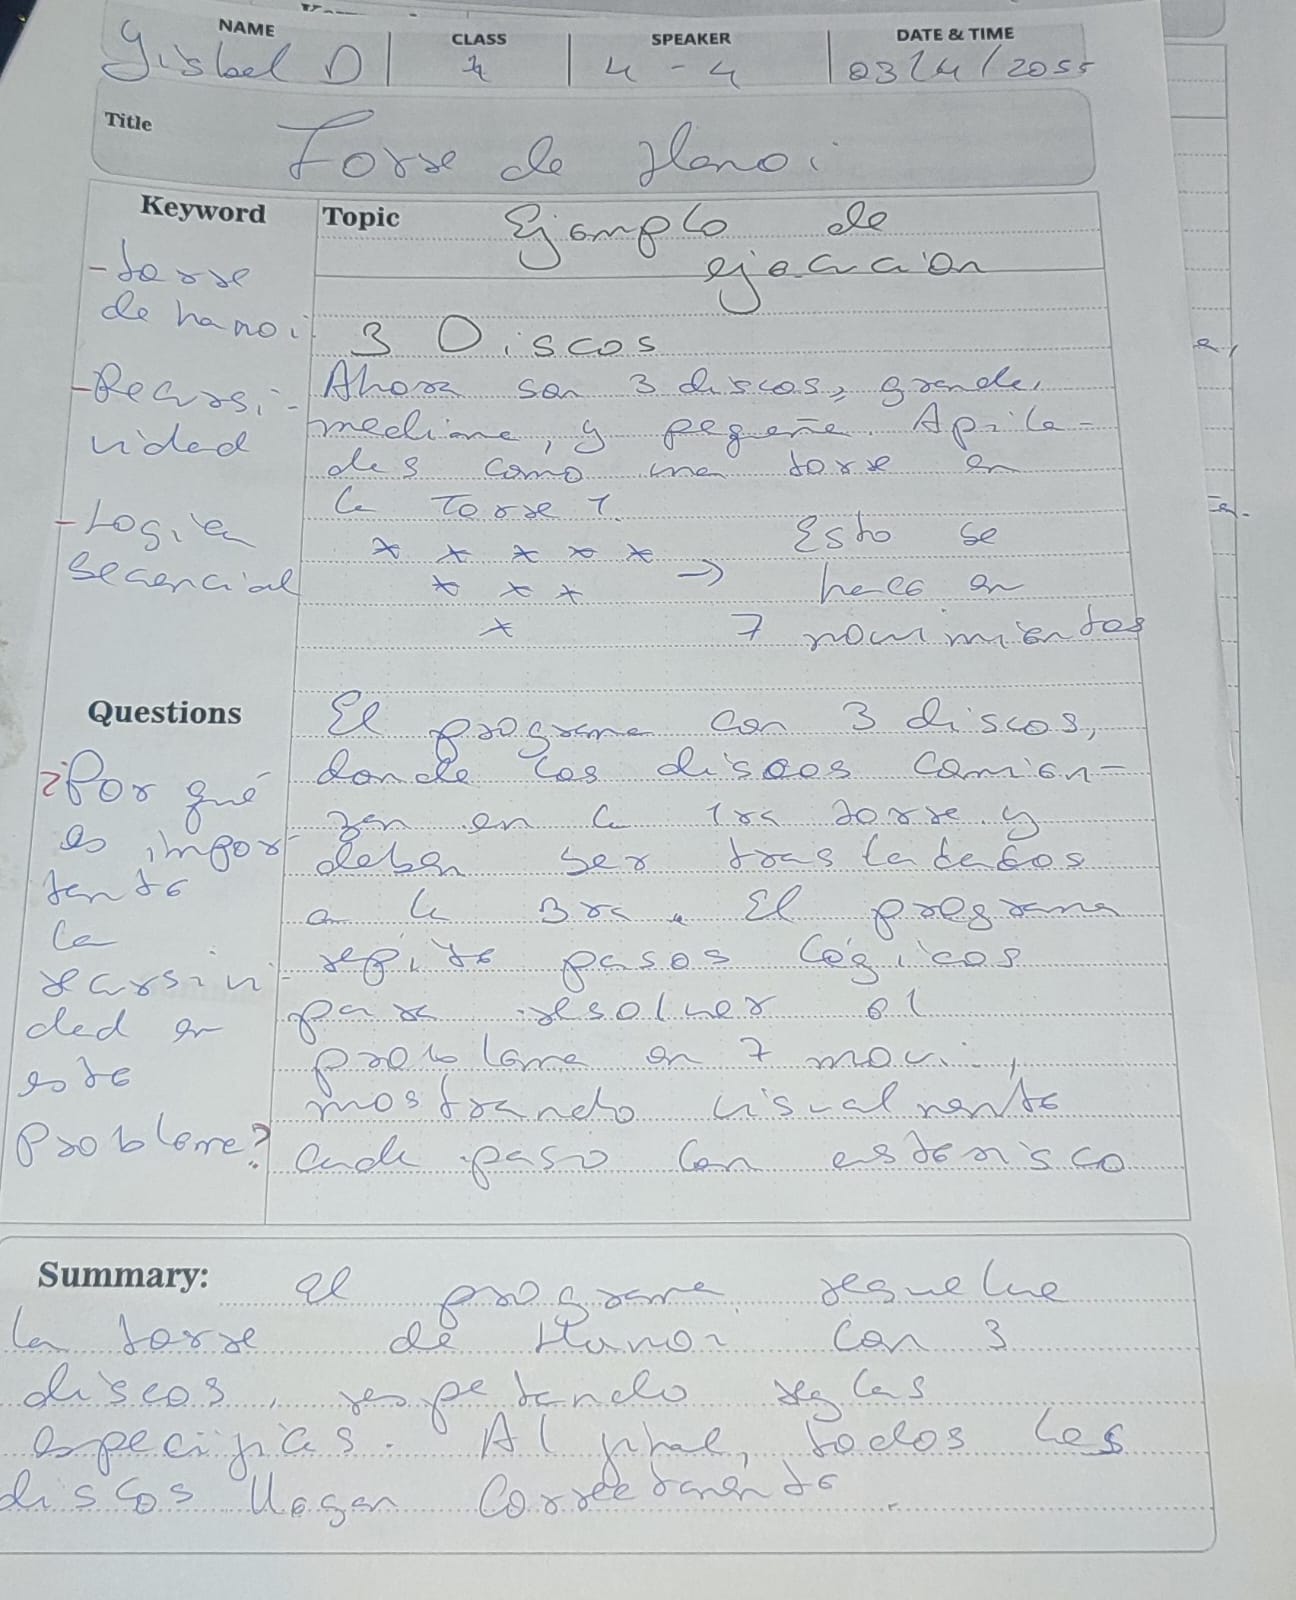 NAME CLASS SPEAKER DATE & TIME
Gisbel D 4 4 - 4 03/4/2055
Title
Torre de Hanoi
Keyword
- torre
de hanoi
- Recursi-
vidad
- Logica
Secuencial
Topic Ejemplo de
ejecucion
3 Discos
Ahora son 3 discos, grande,
mediana, y pequeña. Apila-
das como una torre en
la Torre 1.
* * * * *
* * *
*
→ Esto se
hace en
7 movimientos
Questions
¿Por qué
es impor-
tante
la
recursivi-
dad en
este
Probleme?
El programa con 3 discos,
donde los discos comien-
zan en la 1ra torre y
deben ser trasladados
a la 3ra. El programa
repite pasos lógicos
para resolver el
problema en 7 movi,
mostrando visualmente
cada paso con asterisco
Summary: El programa resuelve
la torre de Hanoi con 3
discos, respetando reglas
especificas. Al final, todos los
discos llegan correctamente.